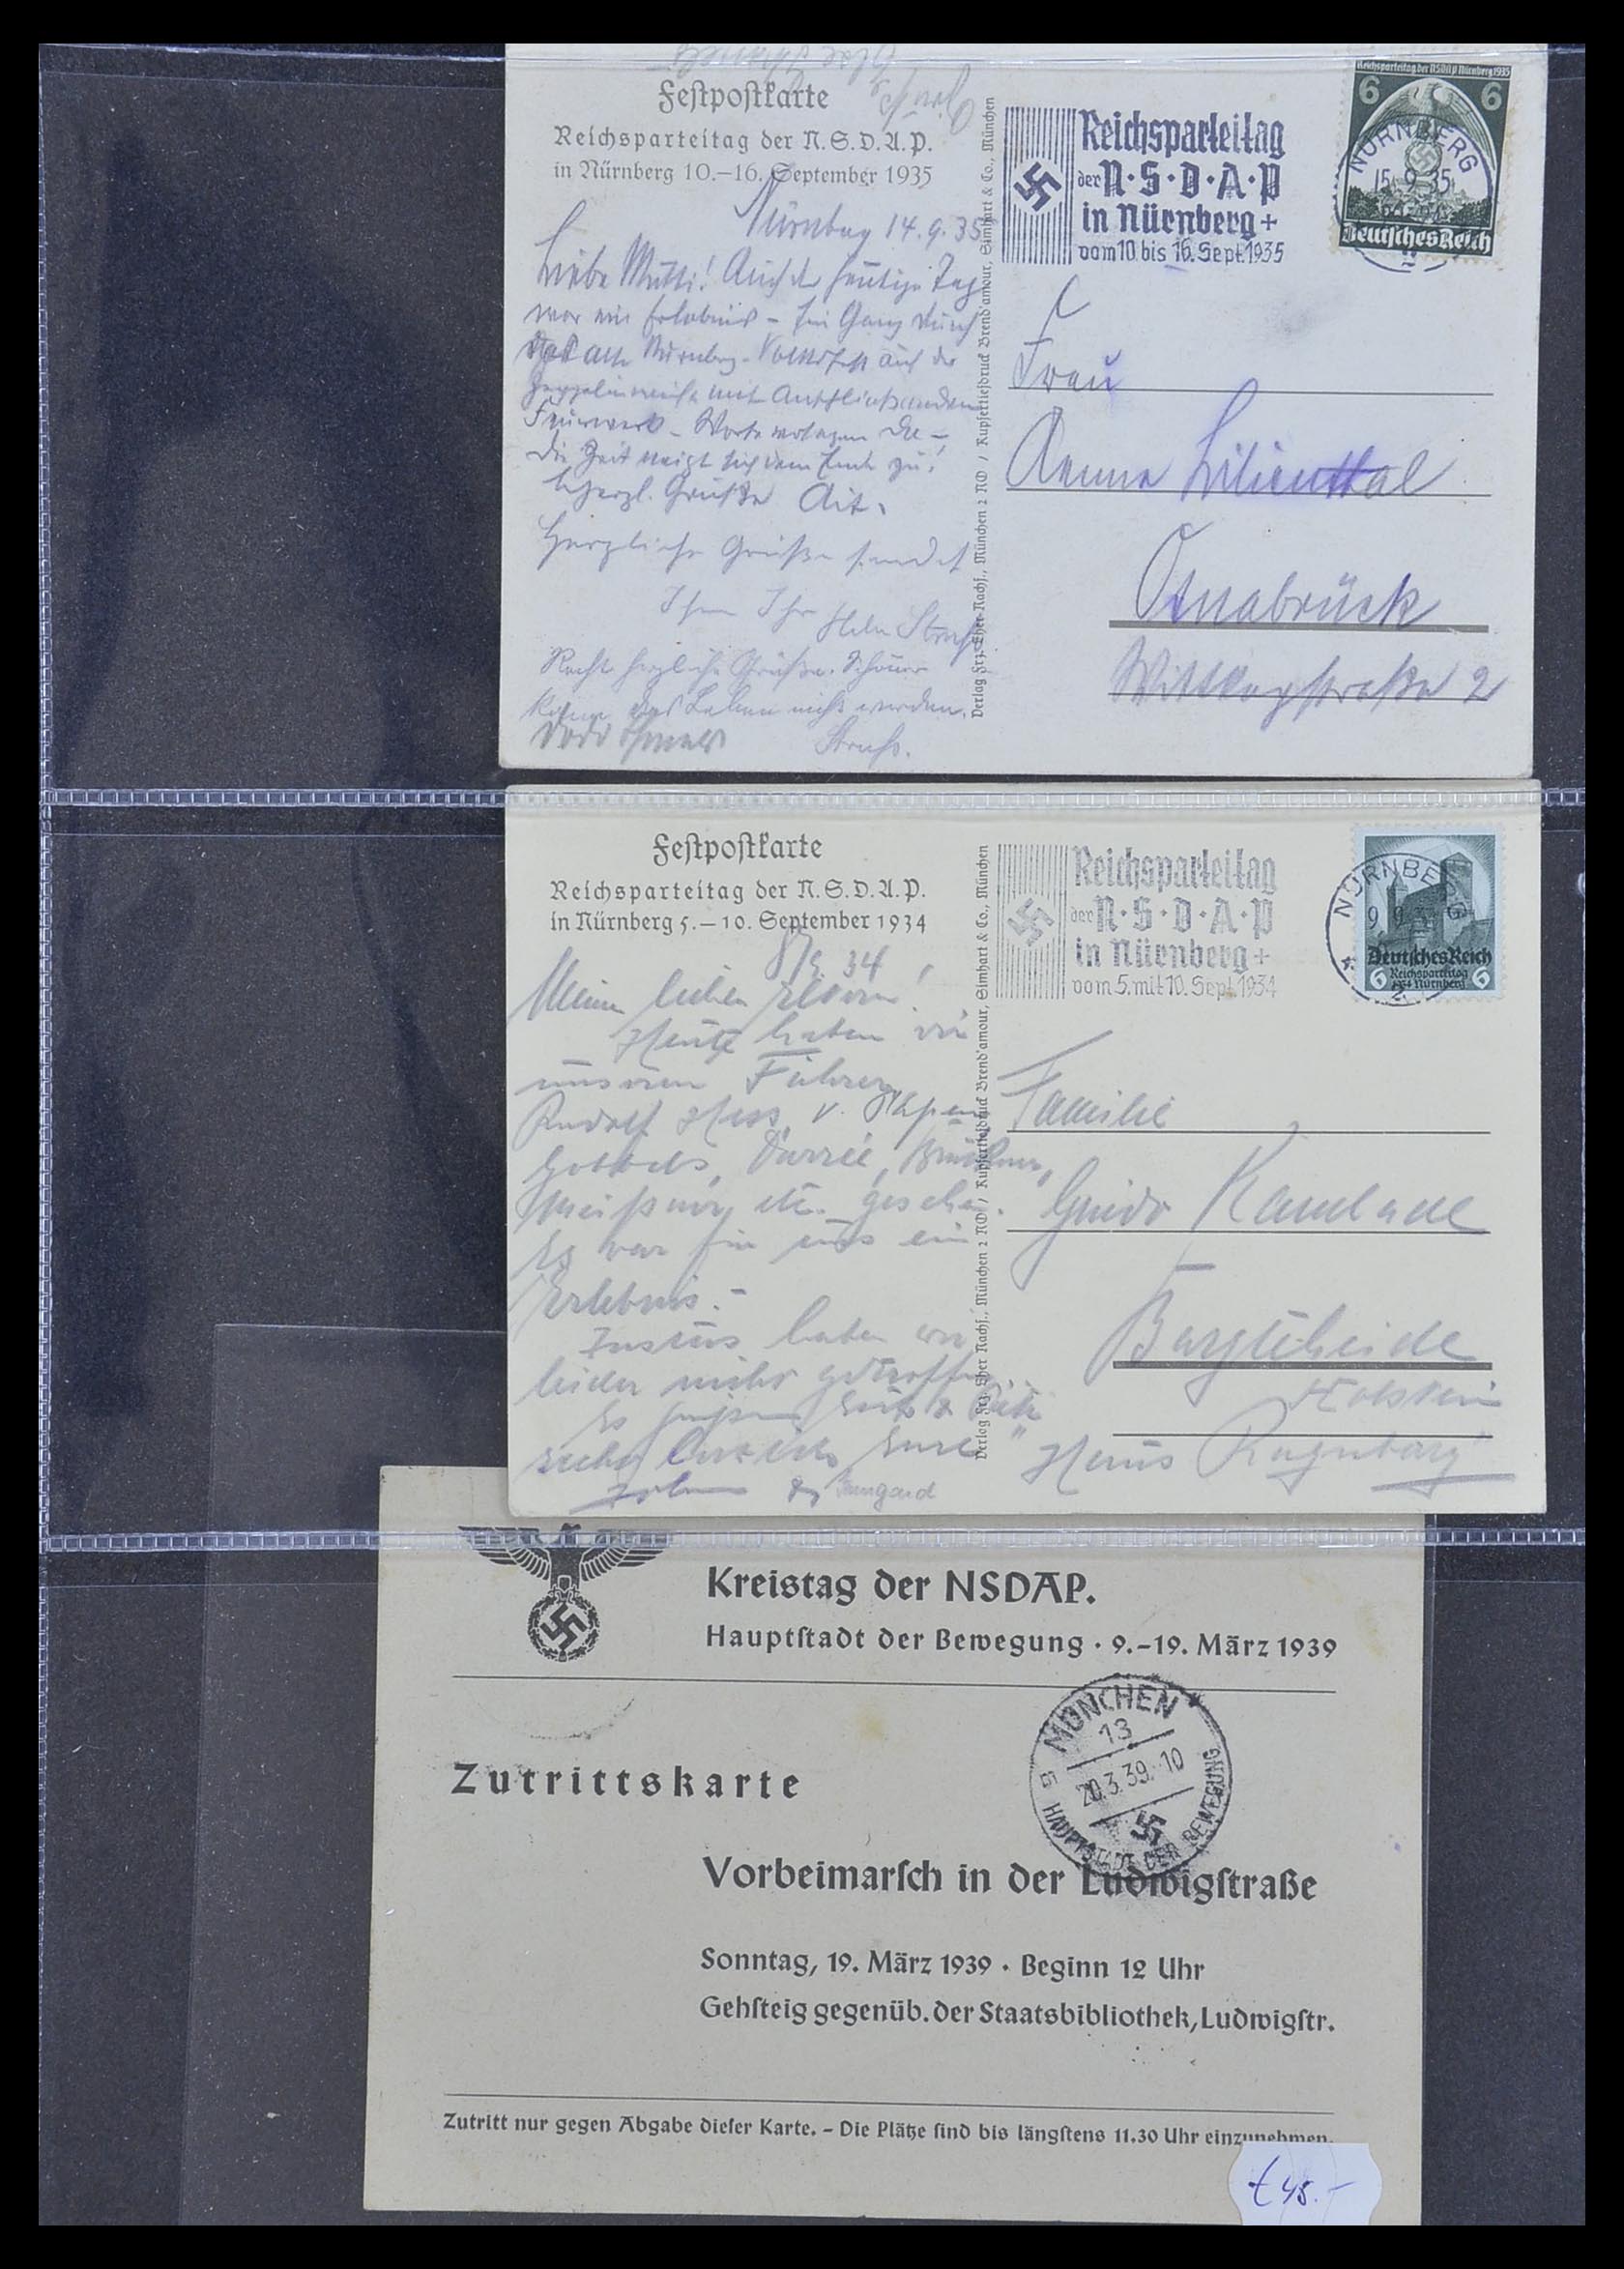 Festpostkarte
Reichsparteitag der N.S.D.A.P.
in Nürnberg 10.–16. September 1935
Nürnberg 14.9.35
Liebe Mutti! Auch der heutige Tag
war ein Erlebnis – Ein Gang durch
das alte Nürnberg – Volksfest auf der
Zeppelinwiese mit anschließendem
Feuerwerk – Worte versagen
die Zeit neigt sich dem Ende zu!
herzl. Grüße
Herzliche Grüße sendet
Ihnen Ihr
Recht herzliche Grüße. Schöner
kann das Leben nicht werden.
Verlag Frz. Eher Nachf., München 2 NO / Kupfertiefdruck Brend'amour, Simhart & Co., München
Reichsparteitag
der N·S·D·A·P
in Nürnberg
vom 10. bis 16. Sept. 1935
Reichsparteitag der NSDAP Nürnberg 1935
6 6
Deutsches Reich
NÜRNBERG
15.9.35
2
Frau
Lilienthal
Osnabrück
2
Festpostkarte
Reichsparteitag der N.S.D.A.P.
in Nürnberg 5.–10. September 1934
8/9. 34
Meine lieben Eltern!
Heute haben wir
unseren Führer,
Rudolf Hess, v. Papen
Göbbels, Darré, Brückner,
Meißner, etc. gesehen.
Es war für uns ein
Erlebnis.–
Justus haben wir
leider nicht getroffen
Es grüßen
Eure
& Irmgard
Verlag Frz. Eher Nachf., München 2 NO / Kupfertiefdruck Brend'amour, Simhart & Co., München
Reichsparteitag
der N·S·D·A·P
in Nürnberg
vom 5. mit 10. Sept. 1934
NÜRNBERG
9.9.
2
Deutsches Reich
6 Reichsparteitag 6
1934 Nürnberg
Familie
Guido
Bargteheide
Holstein
Haus
Kreistag der NSDAP.
Hauptstadt der Bewegung · 9.–19. März 1939
MÜNCHEN
13
20.3.39. 10
HAUPTSTADT DER BEWEGUNG
Zutrittskarte
Vorbeimarsch in der Ludwigstraße
Sonntag, 19. März 1939 · Beginn 12 Uhr
Gehsteig gegenüb. der Staatsbibliothek, Ludwigstr.
Zutritt nur gegen Abgabe dieser Karte. – Die Plätze sind bis längstens 11.30 Uhr einzunehmen.
€ 45.–